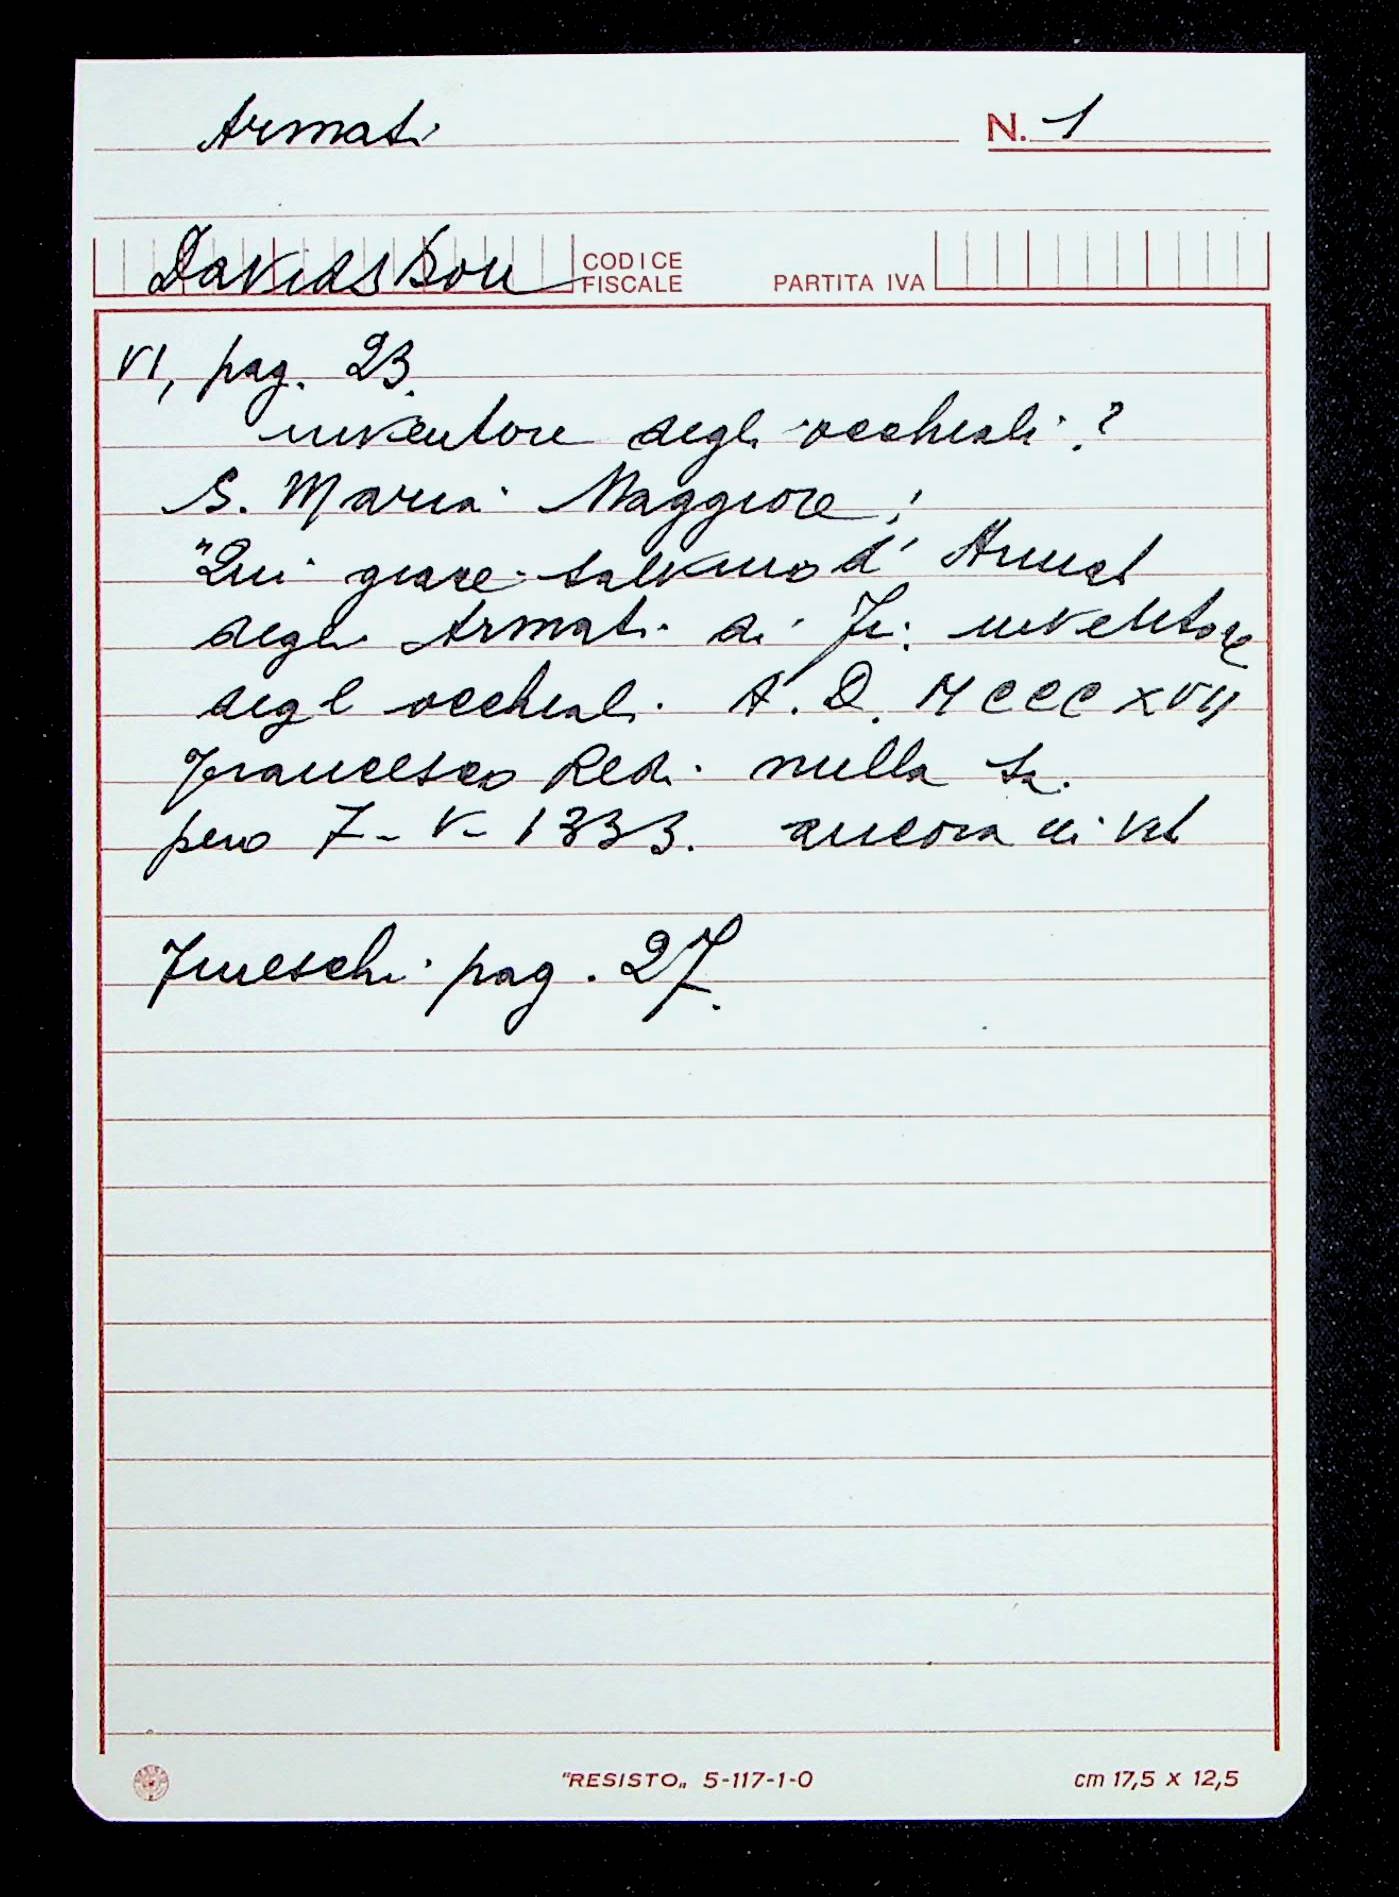 Armati
N. 1
Davidsson
CODICE
FISCALE
PARTITA IVA
VI, pag. 23.
inventore degli occhiali?
S. Maria Maggiore:
"Qui giace Salvino d' Armat
degli Armati di Fi. inventore
degl occhiali. A. D. MCCCXVII
Francesco Redi nulla sa.
pero 7-V-1333. ancora in vit
pag. 27.
"RESISTO„ 5-117-1-0
cm 17,5 x 12,5